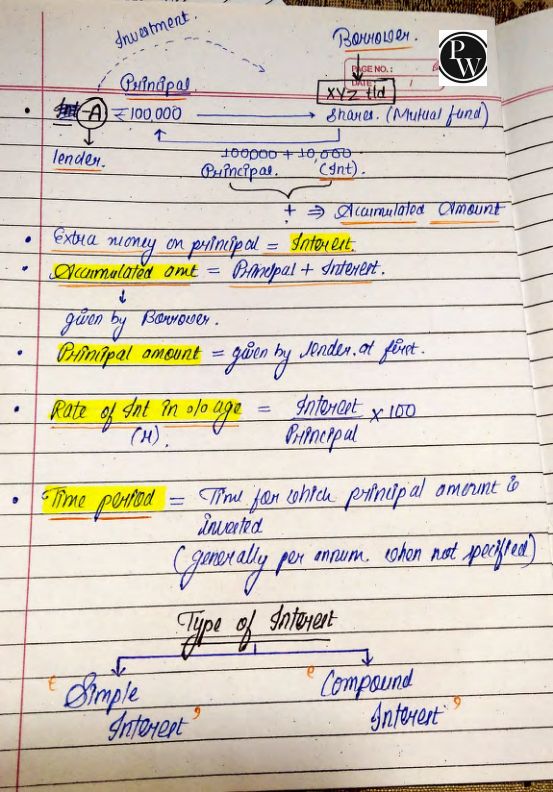 Investment
Borrower.
PW
PAGE NO.:
DATE
Principal
XYZ ltd
A ₹100,000 shares. (Mutual fund)
lender. 100000 + 10,000
Principal. (Int).
+ ⇒ Accumulated Amount
• Extra money on principal = Interest.
• Accumulated amt = Principal + Interest.
↓
given by Borrower.
• Principal amount = given by lender at first.
• Rate of Int in %age = Interest / Principal × 100
(r).
• Time period = Time for which principal amount is
invested
(generally per annum. when not specified)
Type of Interest
"Simple Interest"
"Compound Interest"